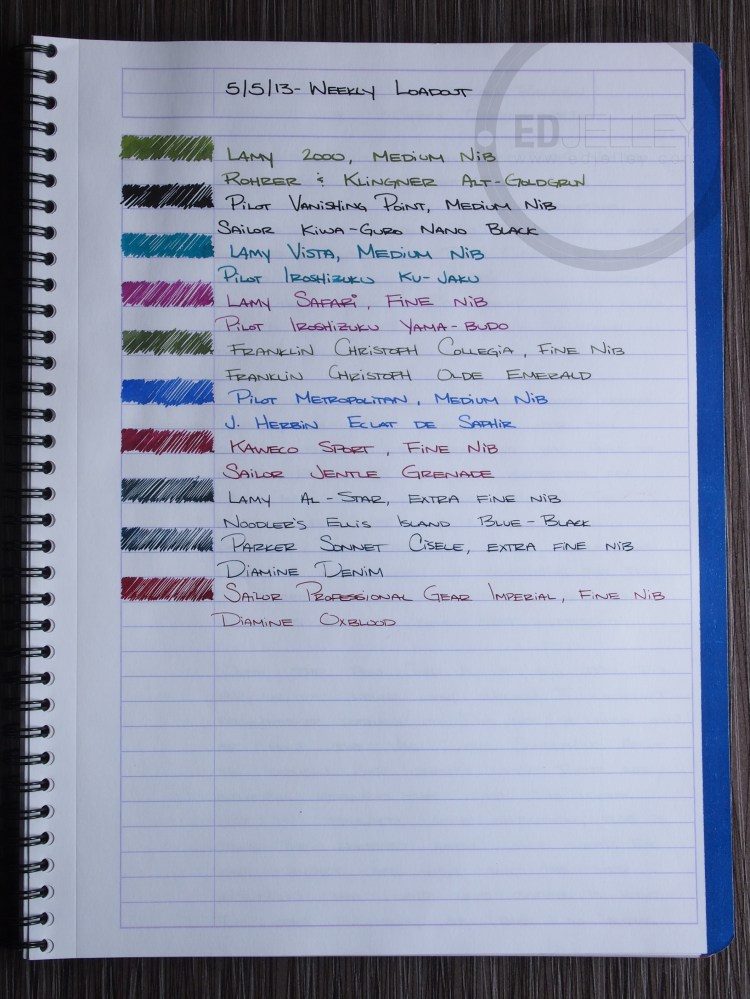 5/5/13 - Weekly Loadout
EDJELLEY
Lamy 2000, Medium Nib
Rohrer & Klingner Alt-Goldgrun
Pilot Vanishing Point, Medium Nib
Sailor Kiwa-Guro Nano Black
Lamy Vista, Medium Nib
Pilot Iroshizuku Ku-Jaku
Lamy Safari, Fine Nib
Pilot Iroshizuku Yama-Budo
Franklin Christoph Collegia, Fine Nib
Franklin Christoph Olde Emerald
Pilot Metropolitan, Medium Nib
J. Herbin Eclat de Saphir
Kaweco Sport, Fine Nib
Sailor Jentle Grenade
Lamy Al-Star, Extra Fine Nib
Noodler's Ellis Island Blue-Black
Parker Sonnet Cisele, Extra Fine Nib
Diamine Denim
Sailor Professional Gear Imperial, Fine Nib
Diamine Oxblood